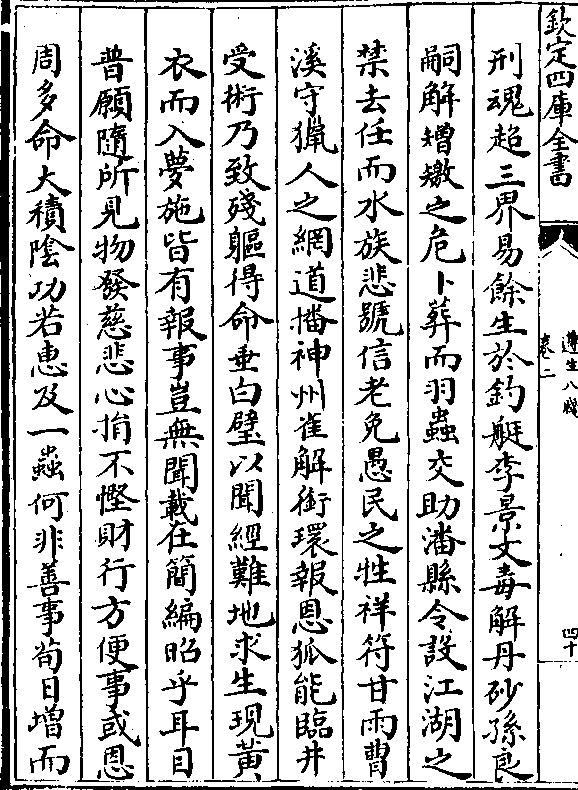 欽定四庫全書
遵生八牋
卷二
四十
刑魂超三界易餘生於釣艇李景文毒解丹砂孫良
嗣解矰繳之危卜葬而羽蟲交助潘縣令設江湖之
禁去任而水族悲號信老免愚民之牲祥符甘雨曹
溪守獵人之網道播神州雀解銜環報恩狐能臨井
受術乃致殘軀得命垂白璧以聞經難地求生現黃
衣而入夢施皆有報事豈無聞載在簡編昭乎耳目
普願隨所見物發慈悲心捐不慳財行方便事或恩
周多命大積陰功若恵及一蟲何非善事茍日增而